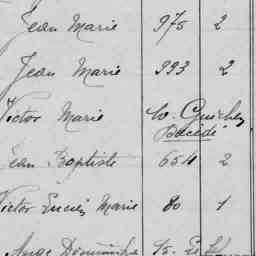 Jean Marie 975 2
Jean Marie 993 2
Victor Marie
Décédé
Jean Baptiste 654 2
Victor Lucien Marie 80 1
Ange Dominique